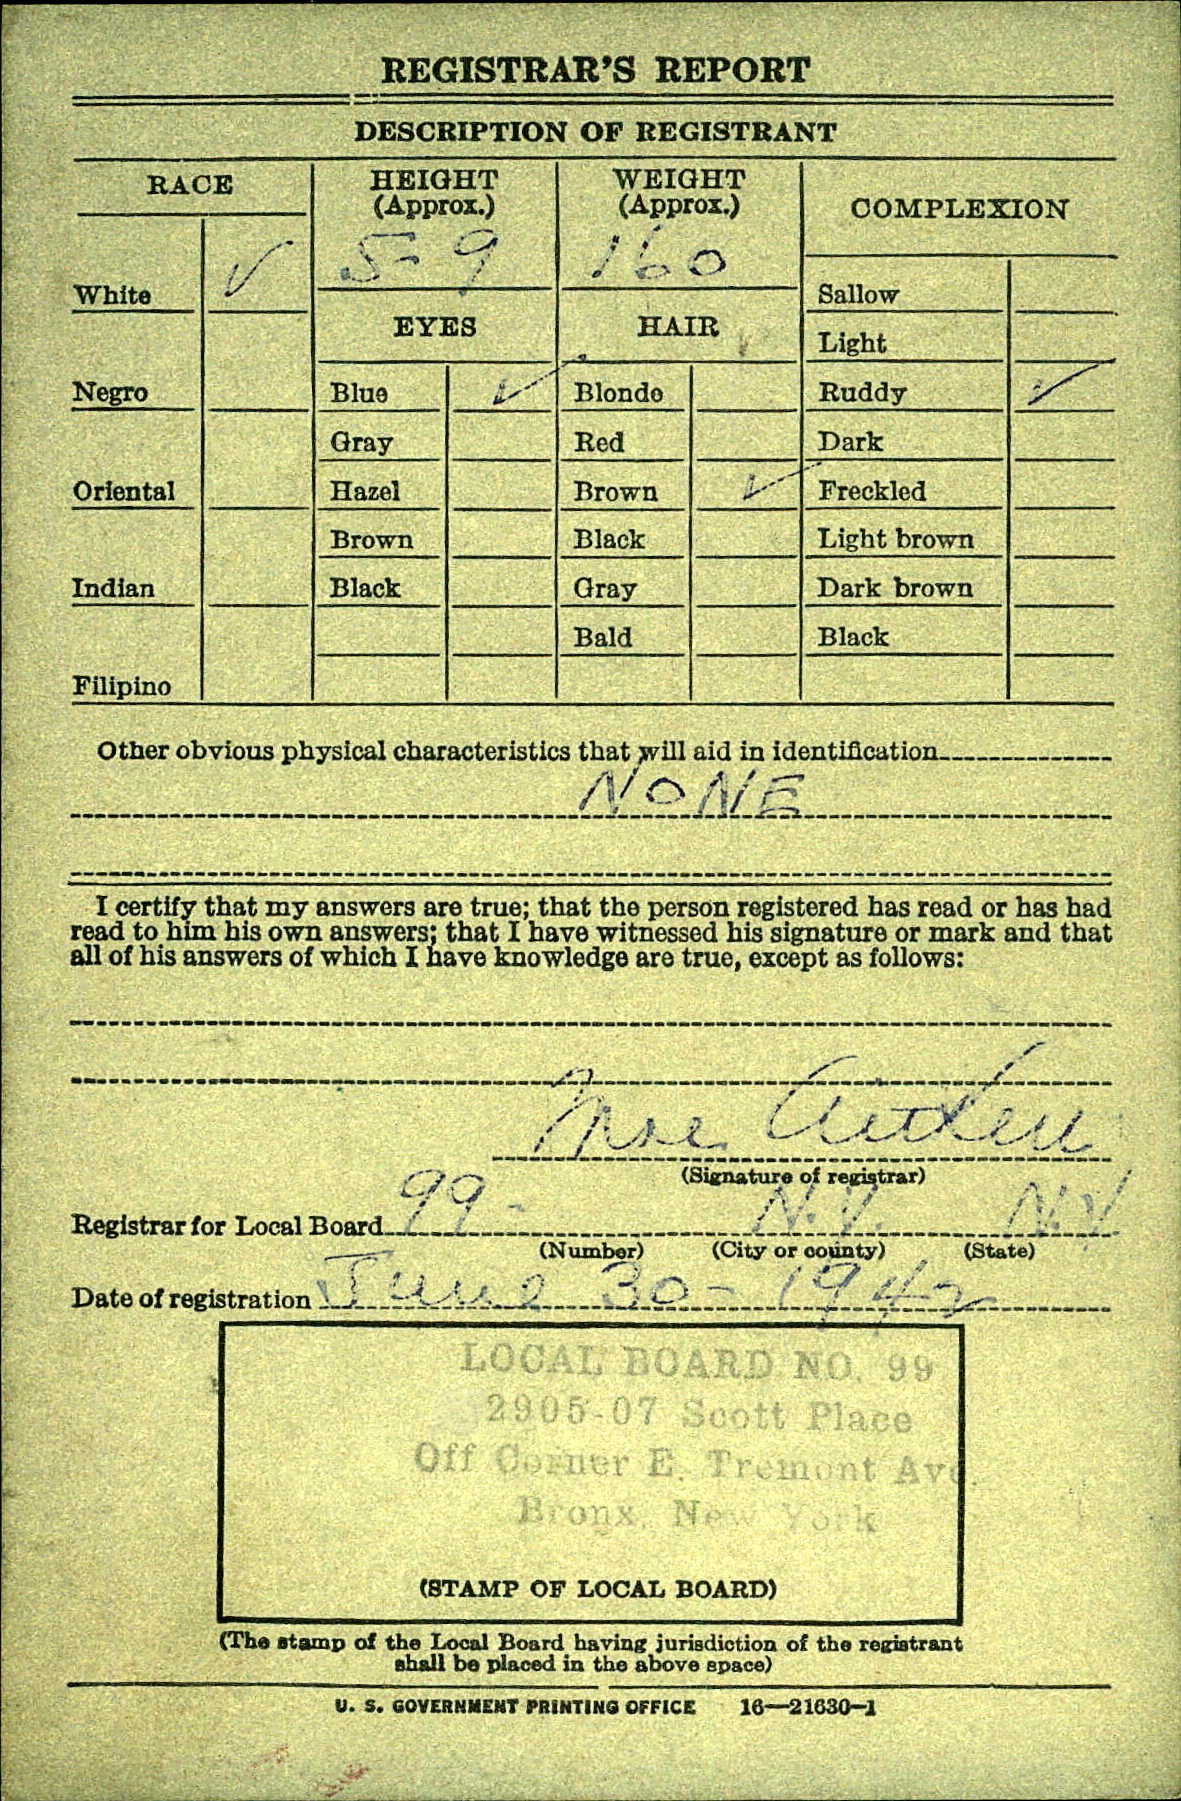 REGISTRAR'S REPORT
DESCRIPTION OF REGISTRANT
RACE
HEIGHT
(Approx.)
5-9
WEIGHT
(Approx.)
160
COMPLEXION
White ✓
Negro
Oriental
Indian
Filipino
EYES
Blue ✓
Gray
Hazel
Brown
Black
HAIR
Blonde
Red
Brown ✓
Black
Gray
Bald
Sallow
Light
Ruddy ✓
Dark
Freckled
Light brown
Dark brown
Black
Other obvious physical characteristics that will aid in identification
NONE
I certify that my answers are true; that the person registered has read or has had
read to him his own answers; that I have witnessed his signature or mark and that
all of his answers of which I have knowledge are true, except as follows:
Aitken
(Signature of registrar)
Registrar for Local Board 99- N.Y. N.Y
(Number) (City or county) (State)
Date of registration June 30-1942
LOCAL BOARD NO. 99
2905-07 Scott Place
Off Corner E. Tremont Ave.
Bronx, New York
(STAMP OF LOCAL BOARD)
(The stamp of the Local Board having jurisdiction of the registrant
shall be placed in the above space)
U. S. GOVERNMENT PRINTING OFFICE 16—21630-1